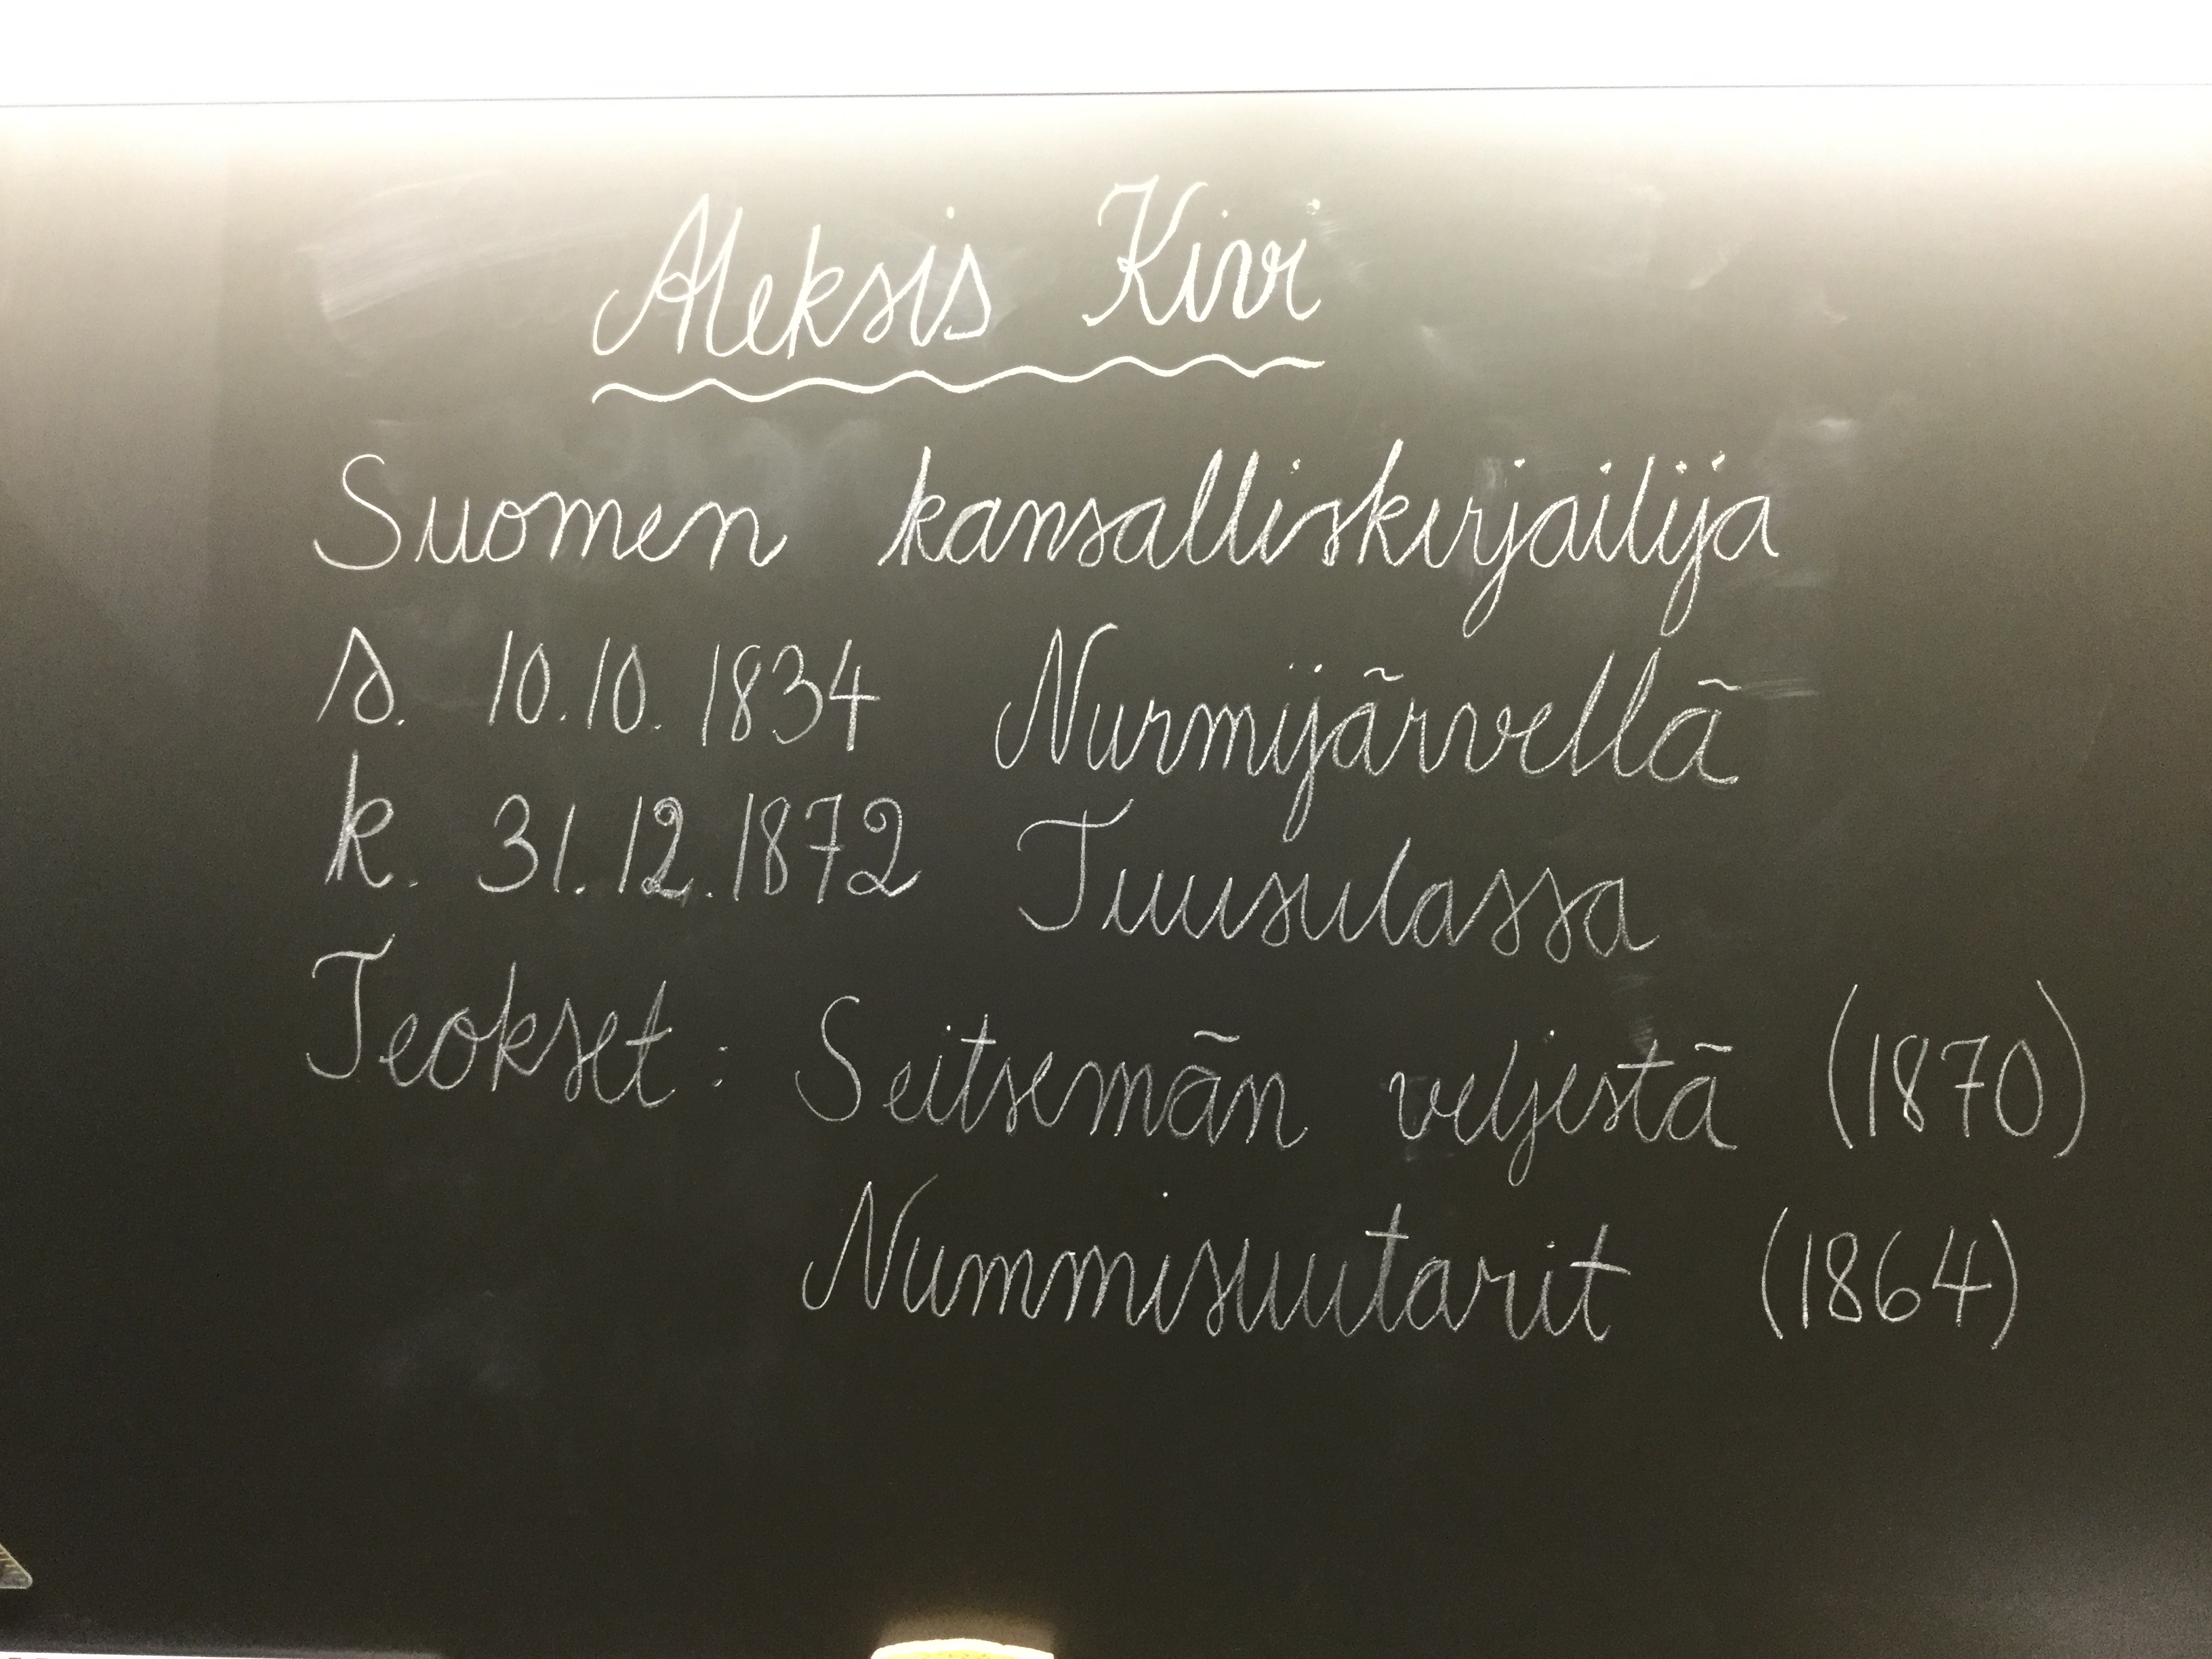 Aleksis Kivi
Suomen kansalliskirjailija
s. 10.10.1834 Nurmijärvellä
k. 31.12.1872 Tuusulassa
Teokset: Seitsemän veljestä (1870)
Nummisuutarit (1864)